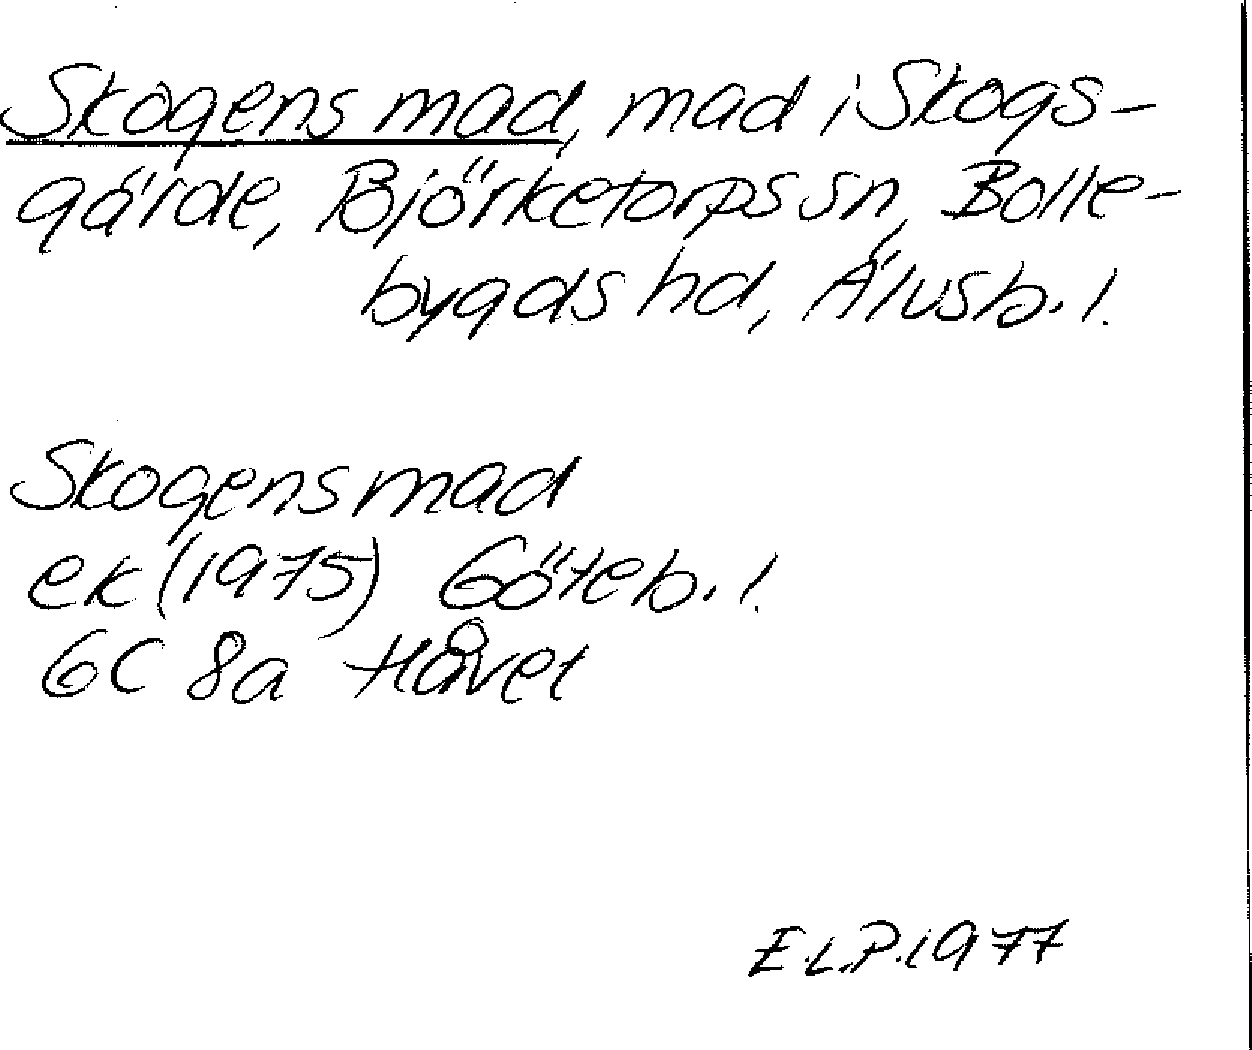 Skogens mad, mad i Skogs-
gärde, Björketorps sn, Bolle-
bygds hd, Älvsb. l.
Skogens mad
ek (1975) Göteb. l.
6C 8a Håvet
E.L.P. 1977